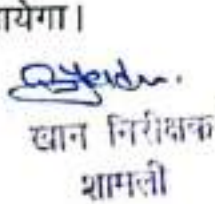 येगा।
खान निरीक्षक
शामली